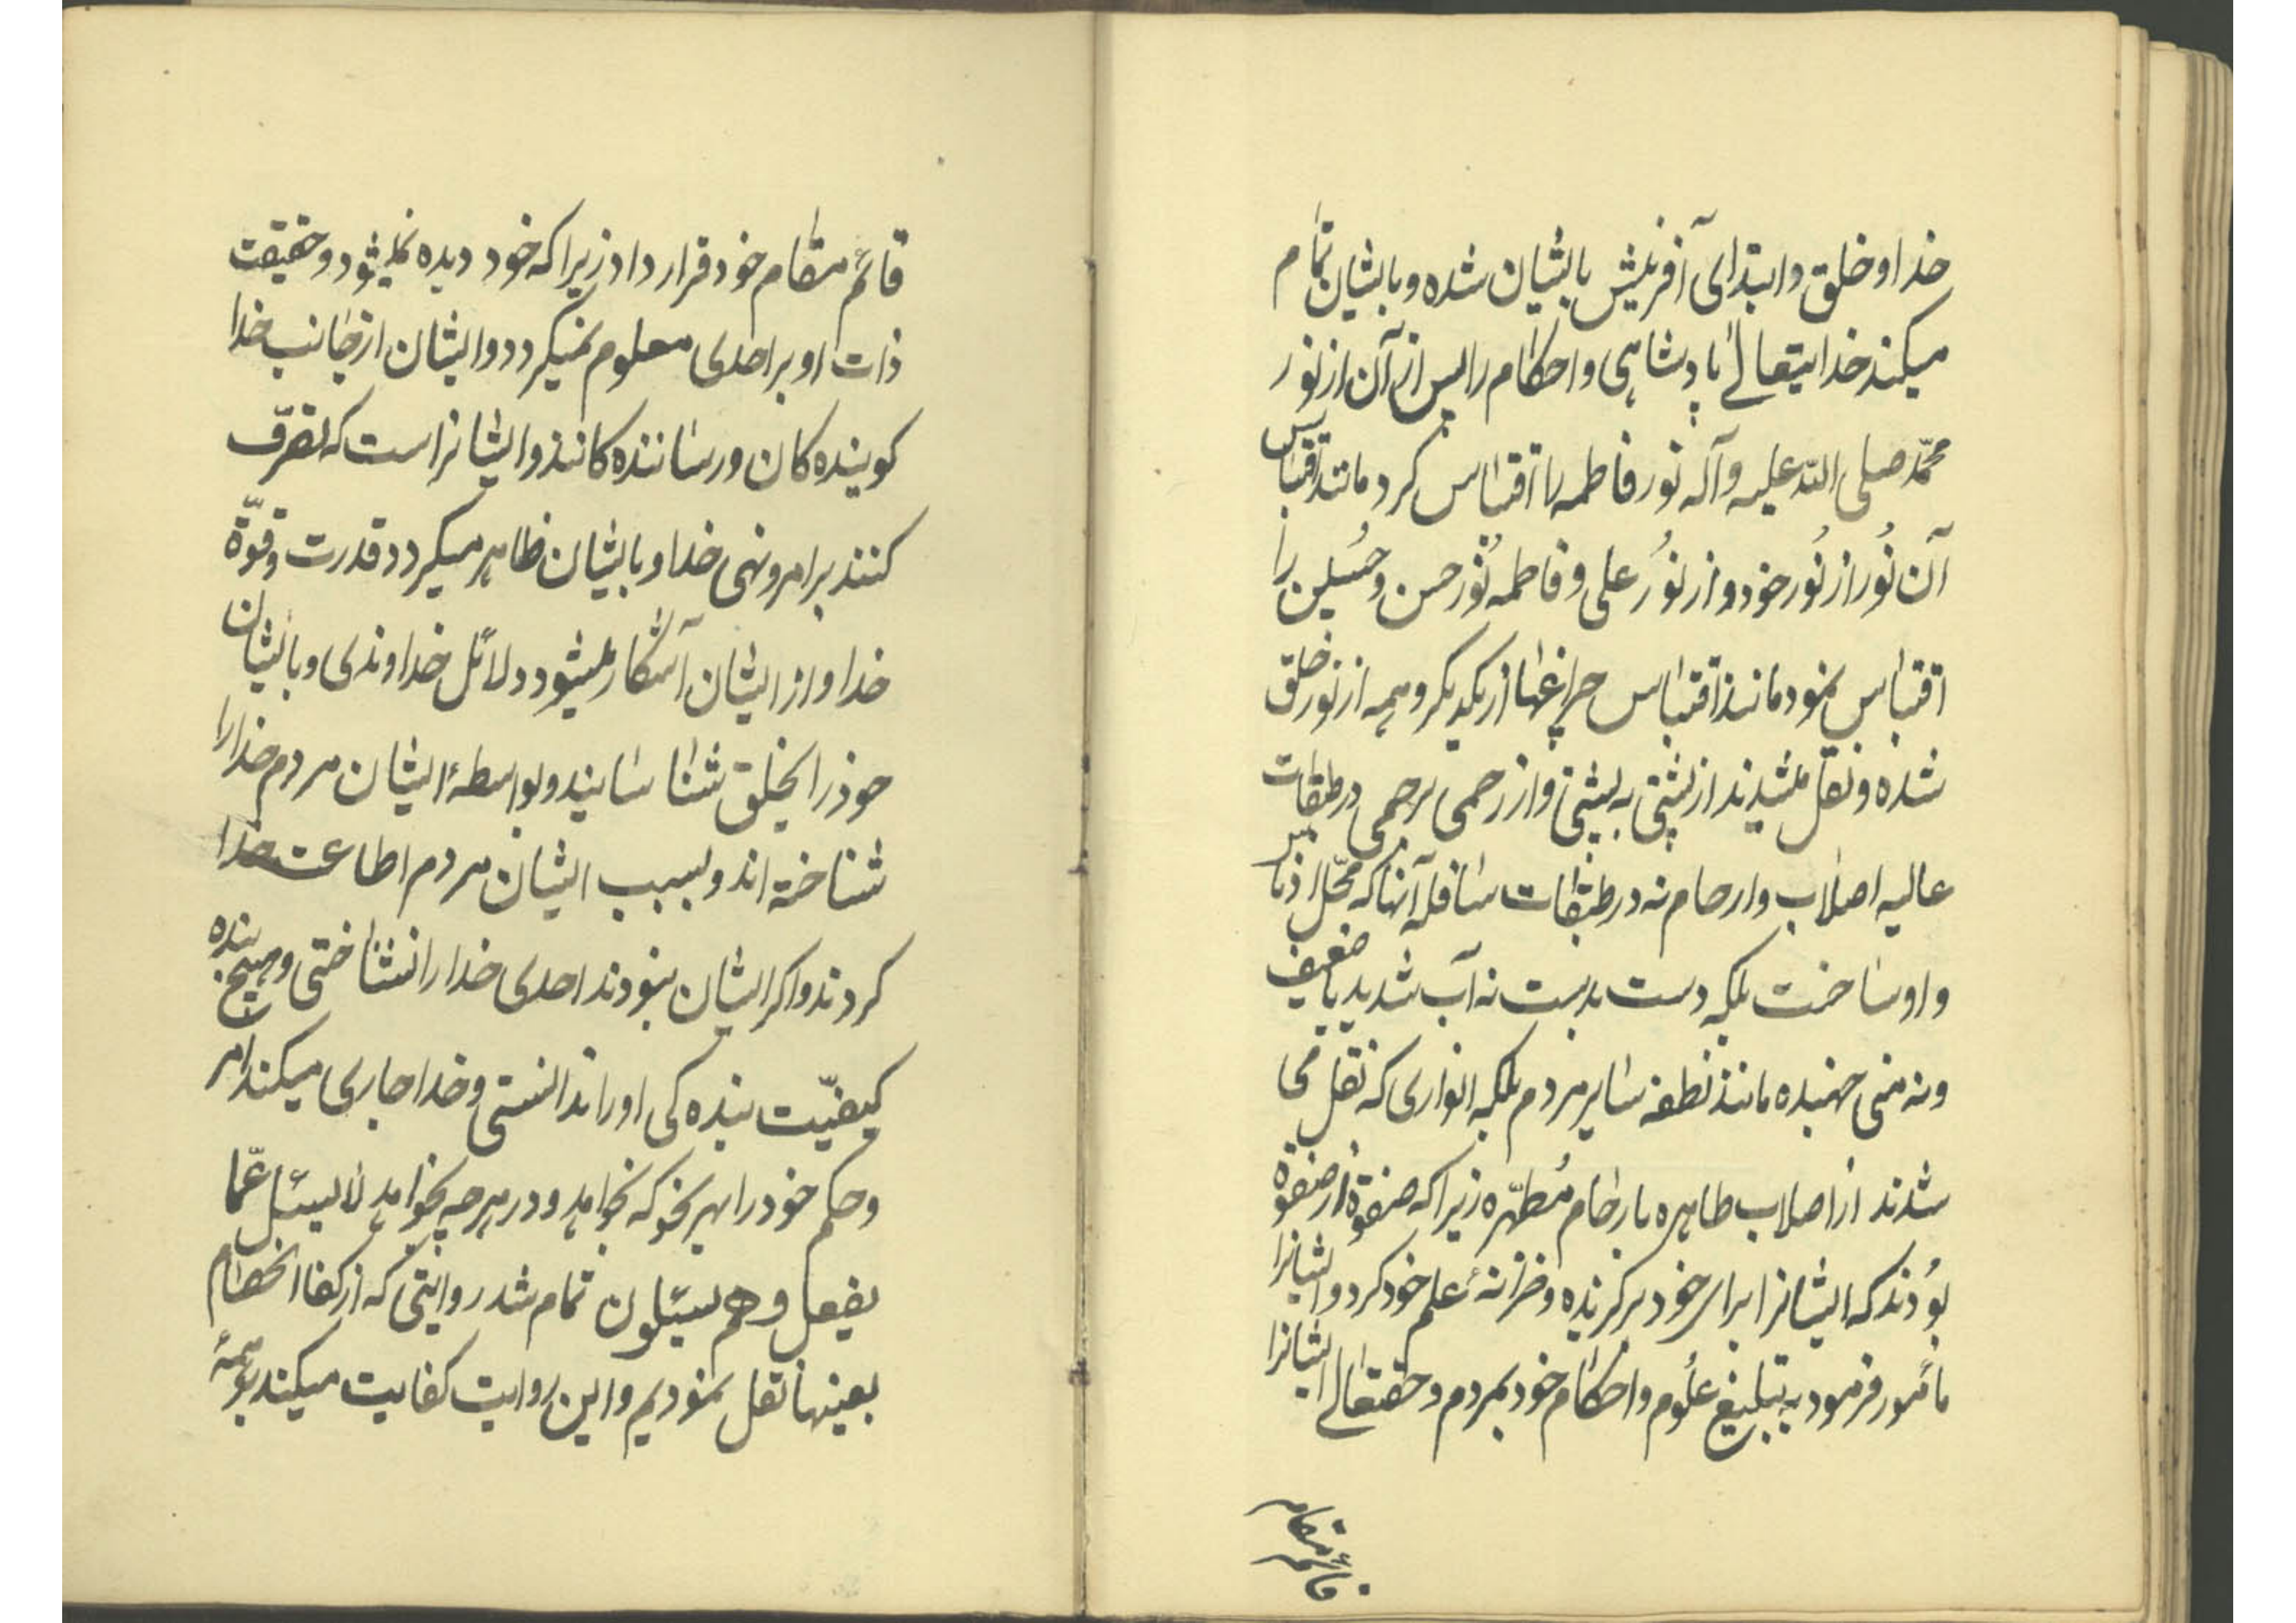 خدا و خلق و ابتدای آفرینش بایشان شده و بایشان تمام
میکند خدایتعالی پادشاهی و احکام را پس از آن از نور
محمّد صلی اللّه علیه و آله نور فاطمه را اقتباس کرد مانند اقتباس
آن نُور از نُور خود و از نوُر علی و فاطمه نُور حسن و حسُین را
اقتباس نمود مانند اقتباس چراغها از یکدیگر و همه از نور خلق
شده و نقل شدند از پشتی به پشتی و از رحمی برحمی در طبقات
عالیه اصلاب و ارحام نه در طبقات سافله آنها که محّل
و اوساخست بلکه دست بدست نه آب شدید یا ضعیف
و نه منی جهنده مانند نطفه سایر مردم بلکه انواری که نقل می
شدند از اصلاب طاهره بارحام مُطهّره زیرا که صفوة از صفوة
بوُدند که ایشانرا برای خود برگزیده و خزانهٔ علم خود کرد و ایشانرا
مأمور فرمود به تبلیغ علُوم و احکام خود بمردم و حقتعالی ایشانرا
قائم مقام
قائم مقام خود قرار داد زیرا که خود دیده نمیشود و حقیقت
ذات او بر احدی معلوم نمیکردد و ایشان از جانب خدا
کوینده کان و رساننده کانند و ایشانراست که تصرّف
کنند بر امر و نهی خدا و بایشان ظاهر میکردد قدرت و قوّة
خدا و از ایشان آشکار میشود دلائل خداوندی و بایشان
خودرا بخلق شناسانید و بواسطهٔ ایشان مردم خدا را
شناخته اند و بسبب ایشان مردم اطاعت خدا
کردند و اکر ایشان نبودند احدی خدا را نشناختی و هیچ بنده
کیفیّت بنده کی او را ندانستی و خدا جاری میکند امر
و حکم خود را بهر نحو که بخواهد و در هر چه بخواهد لا یسئل عمّا
یفعل و هم یسئلون تمام شد روایتی که از
بعینها نقل نمودیم و این روایت کفایت میکند بر همهٔ